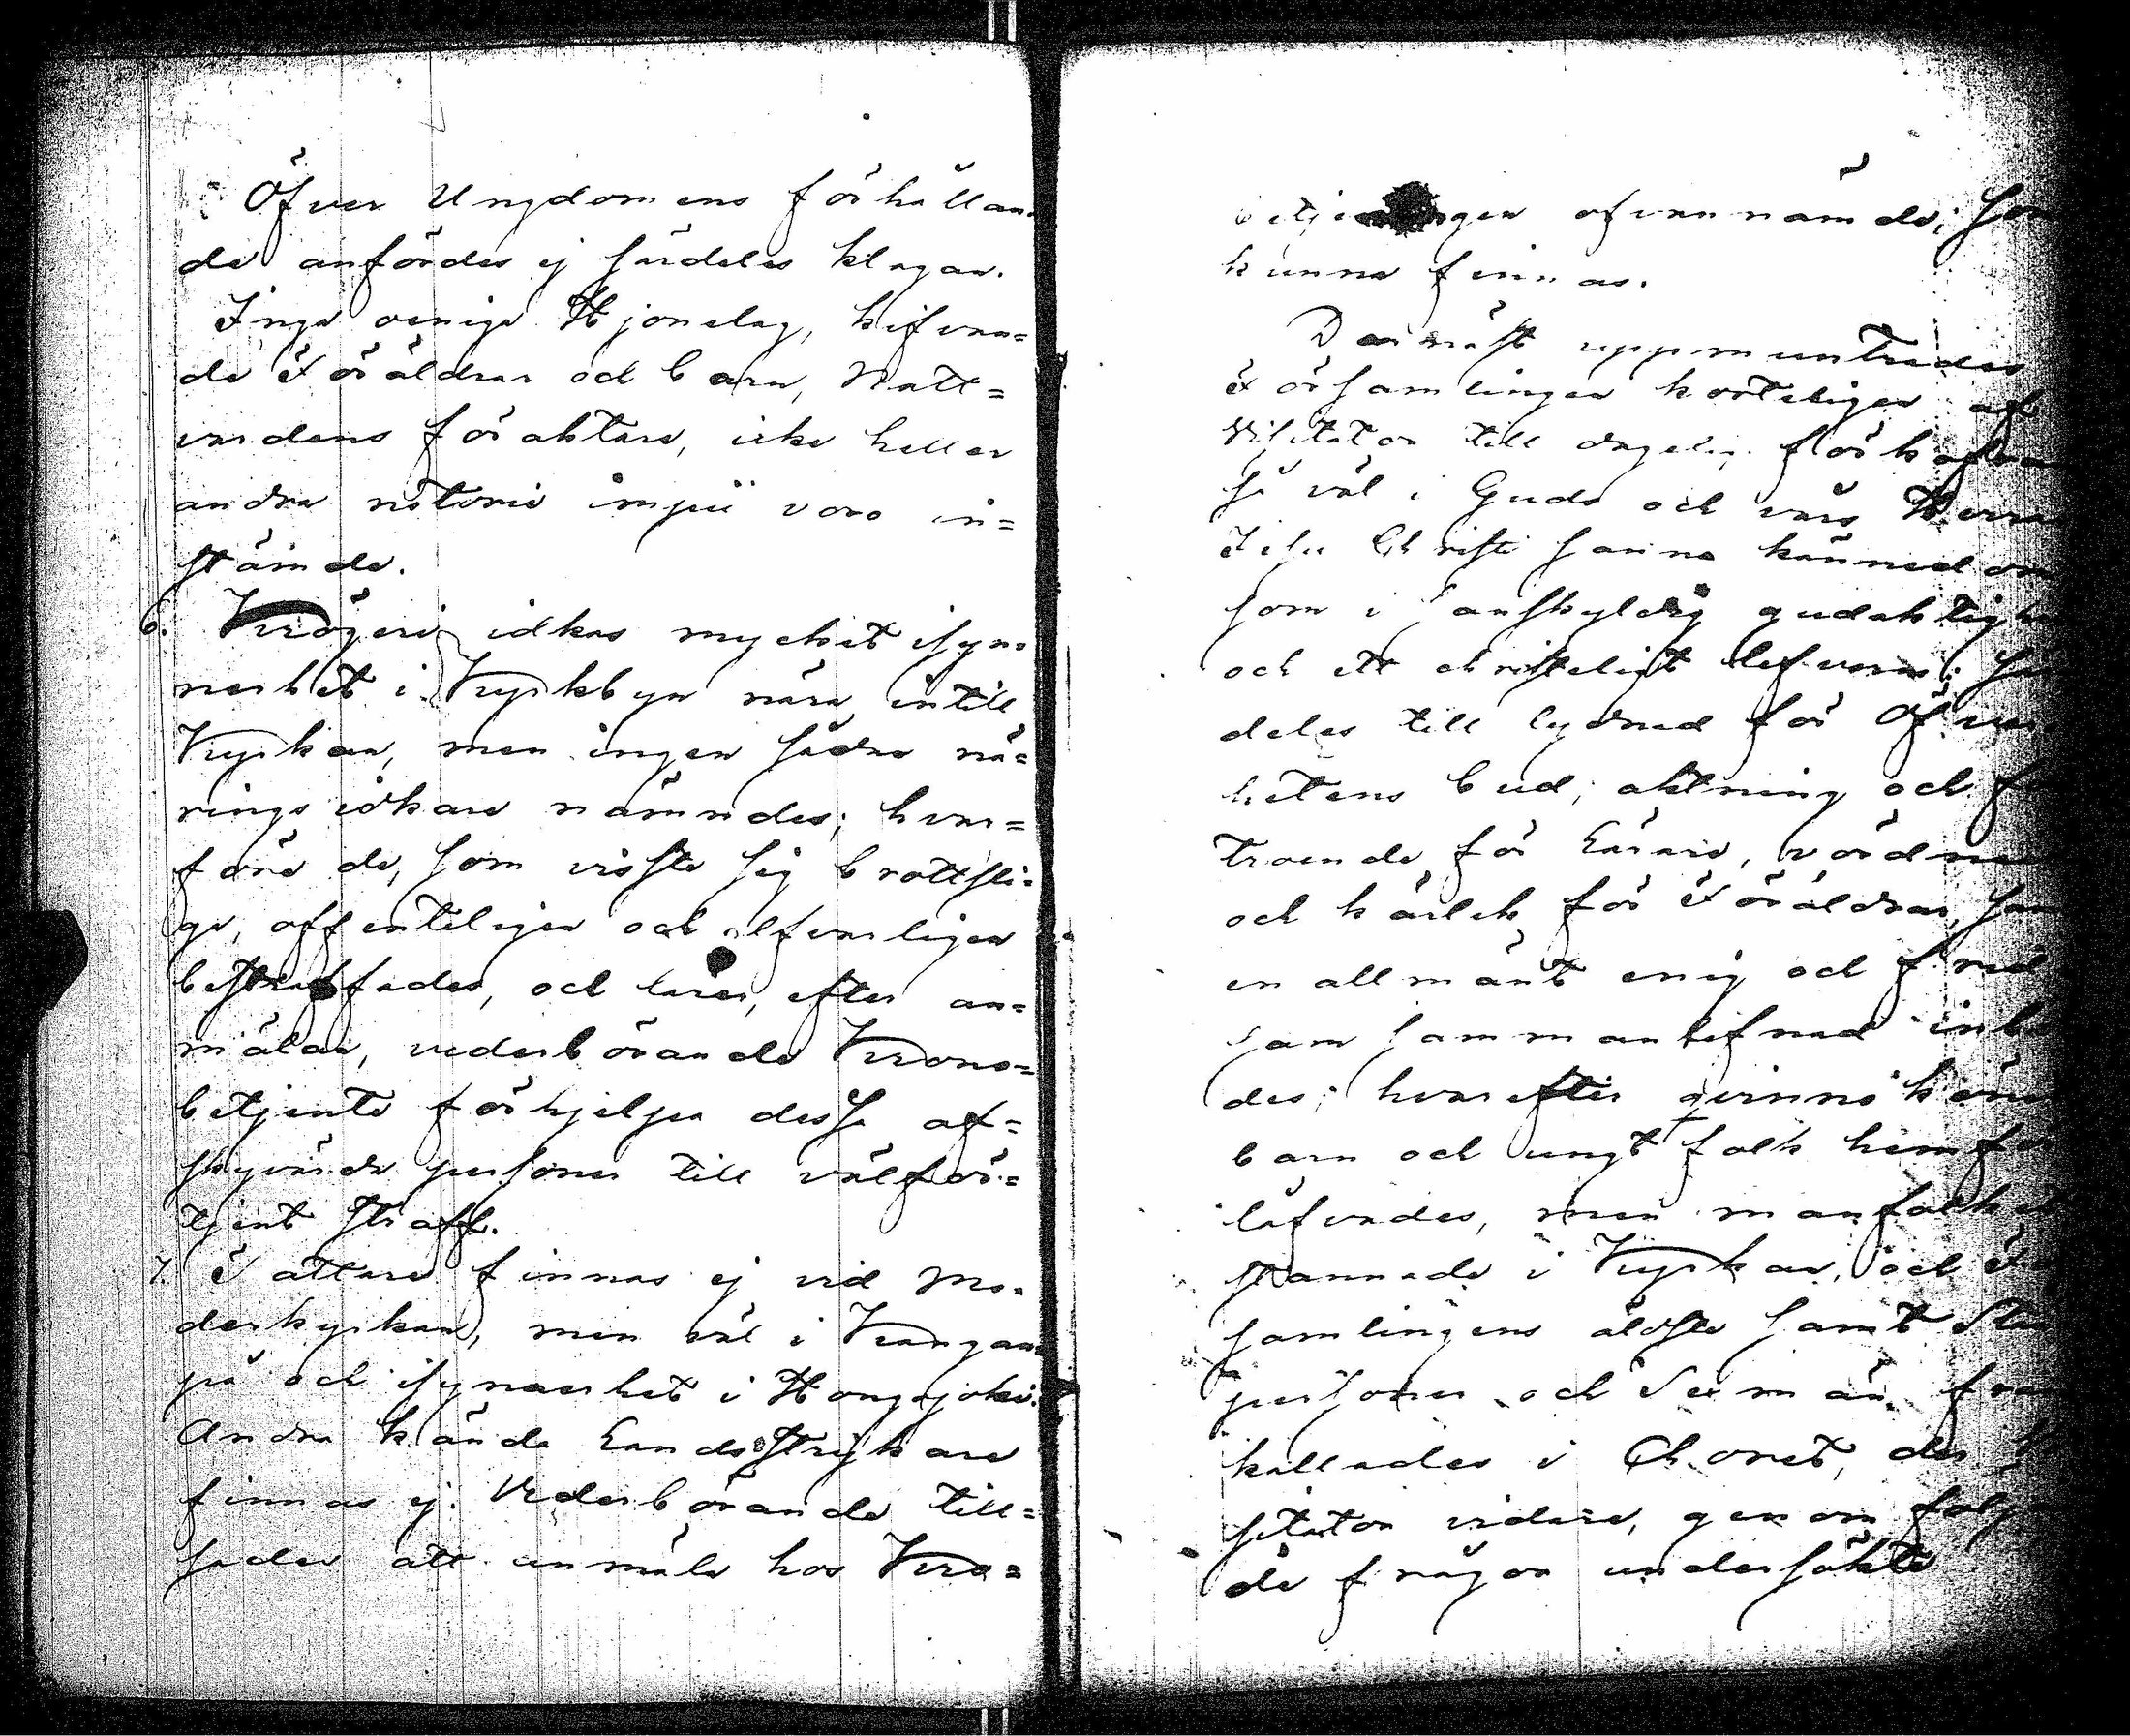 Öfver Ungdomens förhållan-
de anfördes ej särdeles klagan.
Inga oeniga Hjonelag, kifvan=
de Föräldrar och barn, Natt=
vardens föraktare, icke heller
andra notorie impii voro in=
stämde.
6. Krögeri idkas mycket isyn-
nerhet i Kyrkbyn nära intill
Kyrkan, men ingen sådan nä=
rings idkare nämndes; hvar=
före de, som visste sig brottsli-
ge, offenteligen och alfvarligen
bestraffades, och lärer, efter an=
mälan, vederbörande Krono=
betjente förhjelpa dessa af=
skyvärda personer till välför=
tjent straff.
7. Tattare finnas ej vid Mo-
derkyrkan, men väl i Kangas-
pä och isynnerhet i Hongojoki.
Andra kände Landsstrykare
finnas ej. Vederbörande till=
sades att anmäla hos Kro=
betjeningen ofvannämde; som
kunna finnas.
Därnäst uppmuntrades
Församlingen korteligen af
Visitator till dagelig förkofran
så väl i Guds och vårs Herra
Jesu Christi sanna kännedom
som i oanskyldig gudaktighe
och ett christeligt lefverne; sär
deles till lydnad för Öfver
hetens bud; aktning och f
troende för Lärare, vördnad
och kärlek för Föräldrar, sam
en allmänt enig och frid
sam sammanlefnad inbö
des; hvarefter qvinnokönet
barn och ungt folk hemför
låfvades, men manfolket
stannade i Kyrkan, och För
samlingens äldste samt Stån
personer och Sexmän fram
kallades i Choret, der Vi
sitator vidare, genom följ
de frågor undersökte